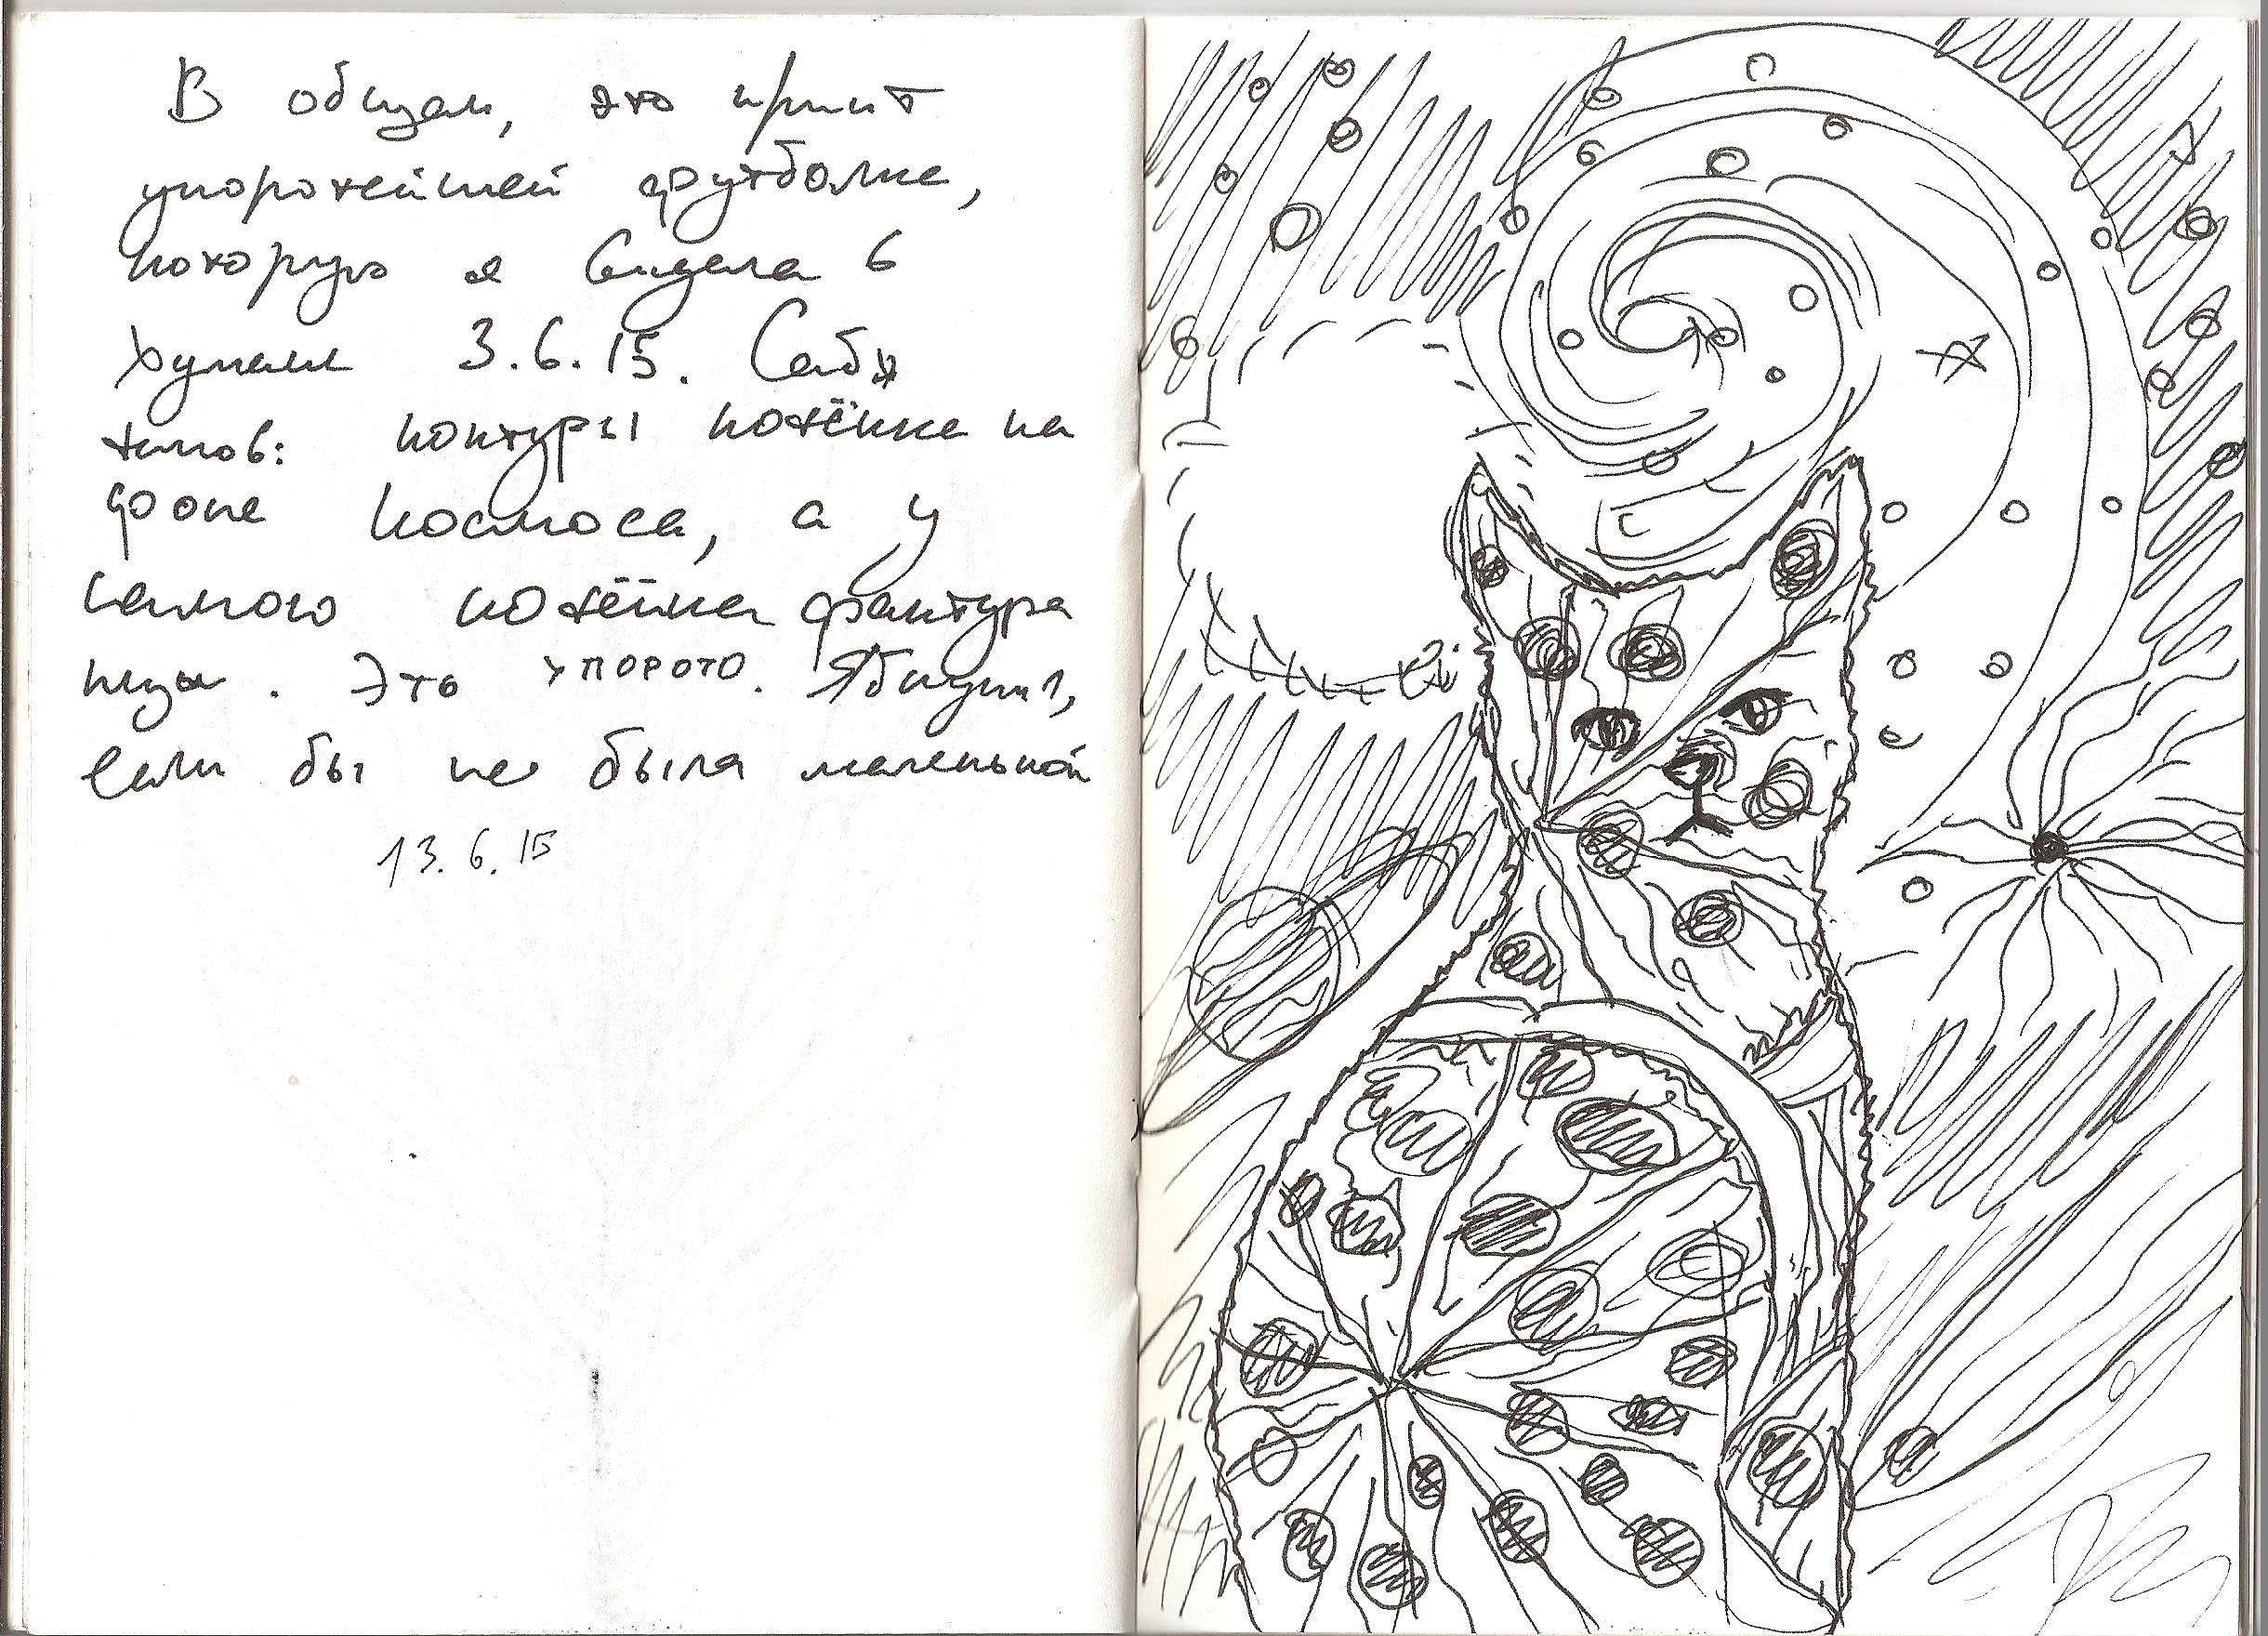 В общем, это принт
упоротейшей футболке,
которую я видела в
Хумане 3.6.15. Сабж
таков: контуры котёнка на
фоне космоса, а у
самого котёнка фактура
пицы. Это упорото. Я б купил,
если бы не была маленькой
13.6.15